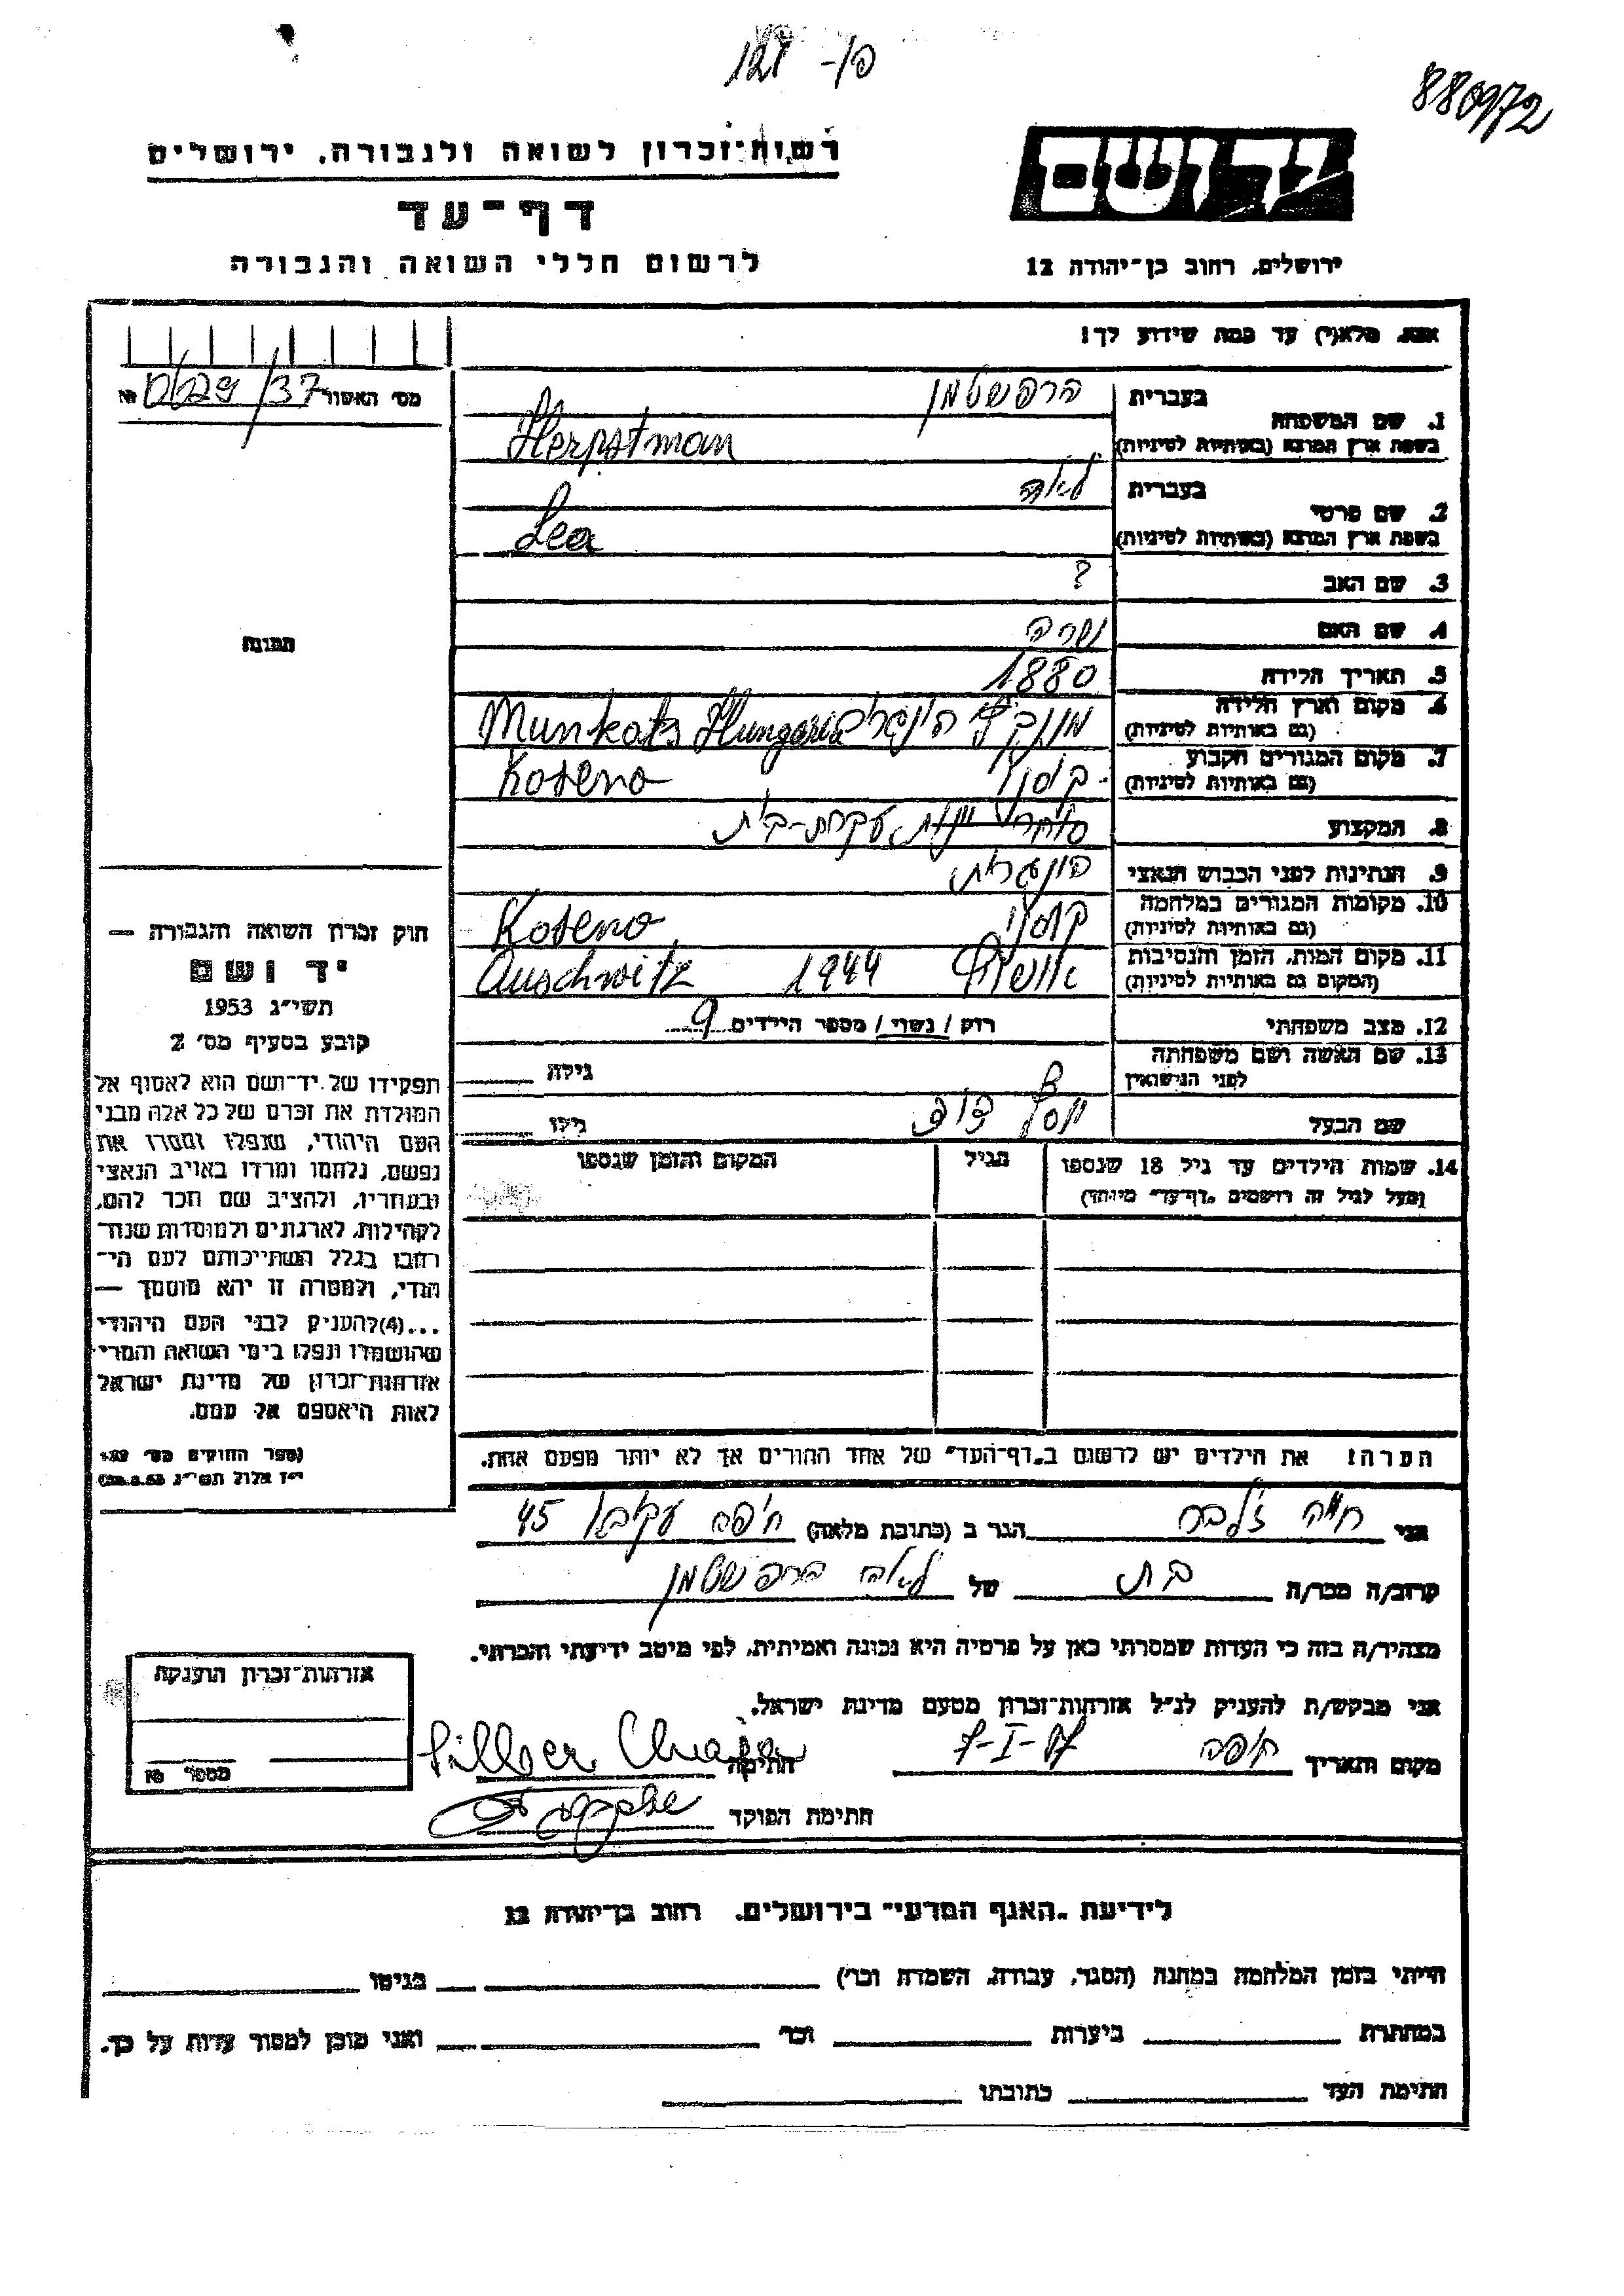 הר- 121
880972
רשות-זכרון לשואה ולגבורה, ירושלים
יד ושם
דף-עד
לרשום חללי השואה והגבורה
ירושלים, רחוב בן-יהודה 12
אנא, מלא(י) עד כמה שידוע לך!
מס' האשור 0629/37 №
1. שם המשפחה
בעברית הרפשטמן
בשפת ארץ המוצא (באותיות לטיניות) Herpstman
2. שם פרטי
בעברית לאה
בשפת ארץ המוצא (באותיות לטיניות) Lea
3. שם האב ?
4. שם האם שרה
5. תאריך הלידה 1880
6. מקום וארץ הלידה
(גם באותיות לטיניות) Munkats Hungaria
7. מקום המגורים הקבוע
(גם באותיות לטיניות) קוסנו Koseno
8. המקצוע עקרת-בית
9. הנתינות לפני הכבוש הנאצי הונגרית
10. מקומות המגורים במלחמה
(גם באותיות לטיניות) קוסנו Koseno
11. מקום המות, הזמן והנסיבות
(המקום גם באותיות לטיניות) אושוויץ 1944 Auschwitz
12. מצב משפחתי רווק / נשוי / מספר הילדים 9
13. שם האשה ושם משפחתה
לפני הנישואין גילה
שם הבעל יוסף גילו
14. שמות הילדים עד גיל 18 שנספו
(מעל לגיל זה רושמים "דף-עד" מיוחד)
הגיל
המקום והזמן שנספו
הערה! את הילדים יש לרשום ב"דף-העד" של אחד ההורים אך לא יותר מפעם אחת.
תמונה
חוק זכרון השואה והגבורה —
יד ושם
תשי"ג 1953
קובע בסעיף מס' 2
תפקידו של יד-ושם הוא לאסוף אל
המולדת את זכרם של כל אלה מבני
העם היהודי, שנפלו ומסרו את
נפשם, נלחמו ומרדו באויב הנאצי
ובעוזריו, ולהציב שם וזכר להם,
לקהילות, לארגונים ולמוסדות שנח-
רבו בגלל השתייכותם לעם הי-
הודי, ולמטרה זו יהא מוסמך —
...(4) להעניק לבני העם היהודי
שהושמדו ונפלו בימי השואה והמרי
אזרחות-זכרון של מדינת ישראל
לאות היאספם אל עמם.
(ספר החוקים מס' 132
י"ז אלול תשי"ג 28.8.53)
אני חיה זלבר הגר ב (כתובת מלאה) חיפה 45
קרוב/ה מכר/ה בת של לאה הרפשטמן
מצהיר/ה בזה כי העדות שמסרתי כאן על פרטיה היא נכונה ואמיתית, לפי מיטב ידיעתי והכרתי.
אני מבקש/ת להעניק לנ"ל אזרחות-זכרון מטעם מדינת ישראל.
מקום ותאריך חיפה 7-I-57 חתימה Silber Chaja
חתימת הפוקד
אזרחות-זכרון הוענקה
מספר №
לידיעת "האגף המדעי" בירושלים. רחוב בן-יהודה 12
הייתי בזמן המלחמה במחנה (הסגר, עבודה, השמדה וכו') בגיטו
במחתרת ביערות וכו' ואני מוכן למסור עדות על כך.
חתימת העד כתובתו